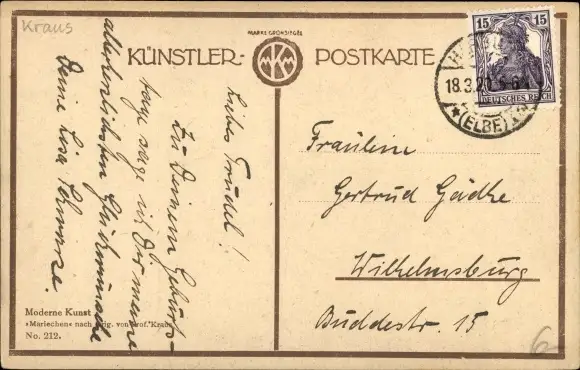 Kraus
MARKE GROHSIEGEL
KÜNSTLER-POSTKARTE
MKM
15 15
DEUTSCHES REICH
18.3.20. 5-6
(ELBE)
Liebes Trudel!
Zu Deinem Geburts-
tage sage ich Dir meine
allerherzlichsten Glückwünsche
Deine Lisa
Fräulein
Gertrud Gädke
Wilhelmsburg
Buddestr. 15
Moderne Kunst
»Mariechen« nach Orig. von Prof. Kraus
No. 212.
6